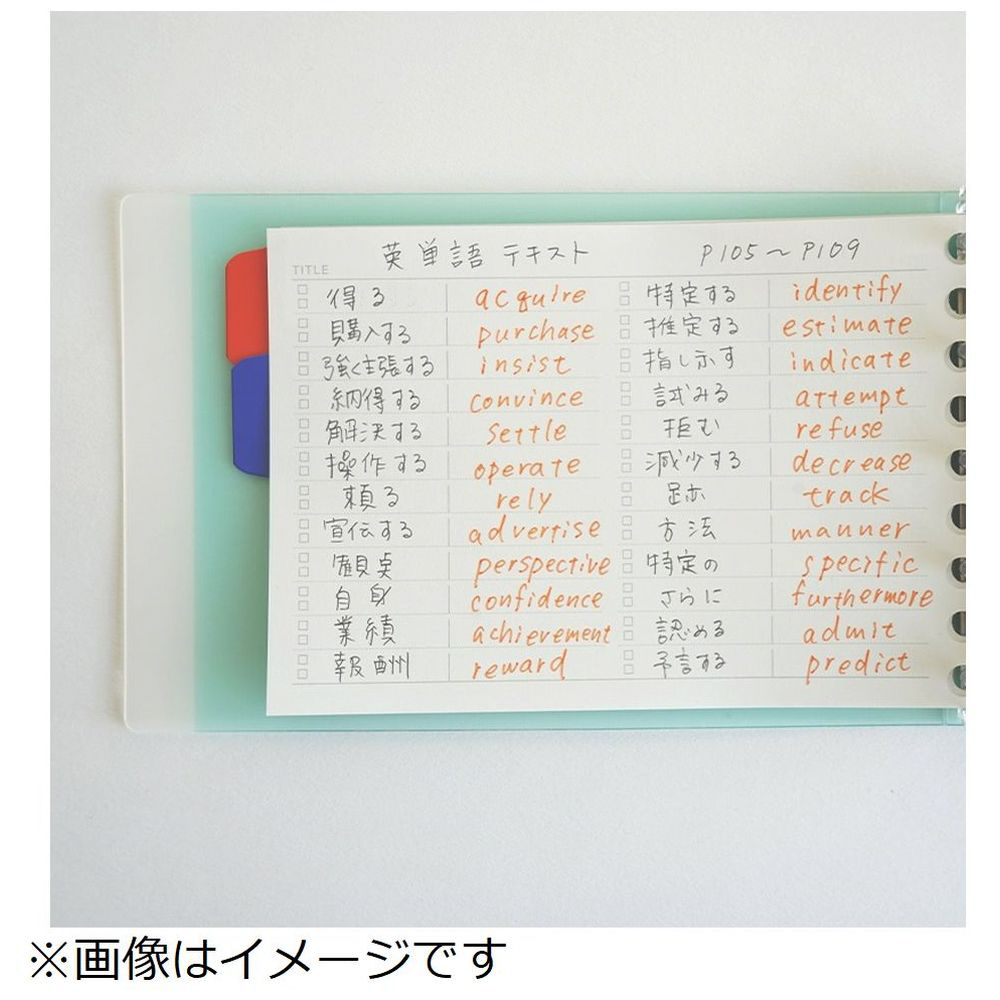 TITLE 英単語テキスト P105～P109
得る acquire
購入する purchase
強く主張する insist
納得する convince
解決する settle
操作する operate
頼る rely
宣伝する advertise
perspective
自身 confidence
業績 achievement
報酬 reward
特定する identify
推定する estimate
指し示す indicate
試みる attempt
拒む refuse
減少する decrease
足跡 track
方法 manner
特定の specific
さらに furthermore
認める admit
予言する predict
※画像はイメージです